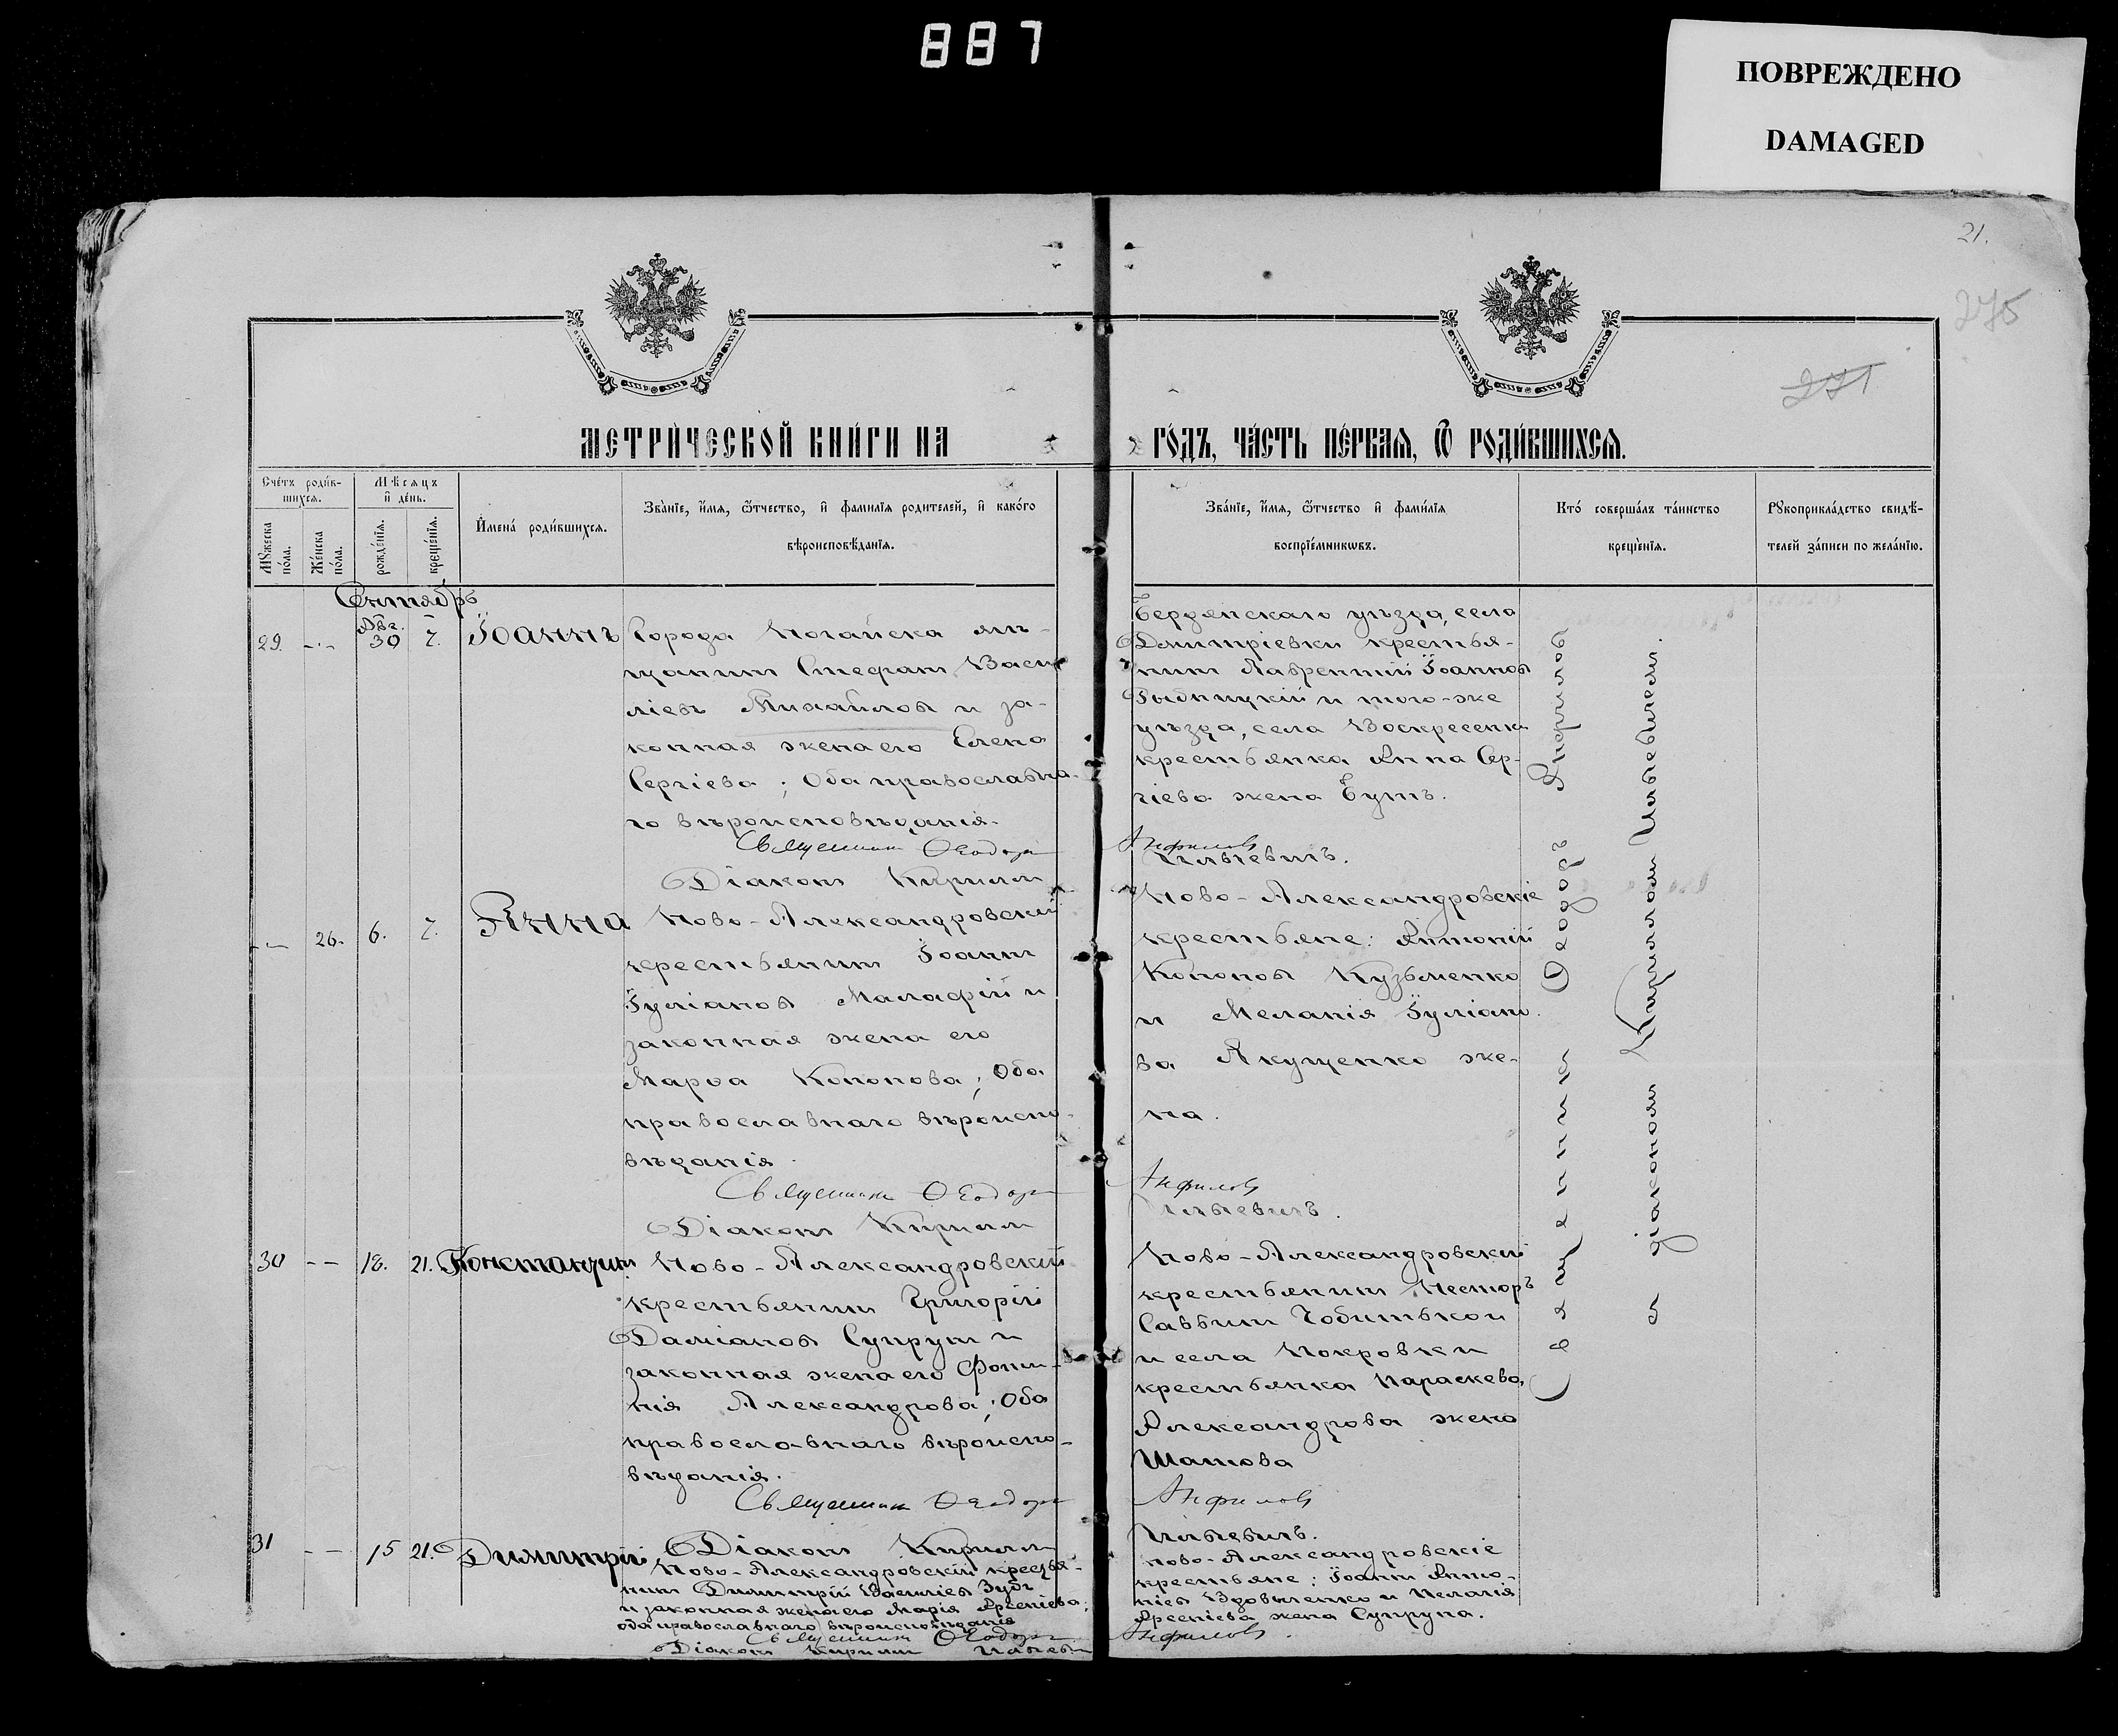 887
ПОВРЕЖДЕНО
DAMAGED
21.
275
271
МЕТРИ́ЧЕСКОЙ КНИ́ГИ НА
ГО́ДЪ, ЧА́СТЬ ПЕ́РВАЯ, Ѿ РОДИ́ВШИХСЯ.
Сче́тъ роди́в-
шихся.
Мѣсяцъ
и҆ де́нь.
Мꙋжеска по́ла.
Же́нска по́ла.
рожде́нїя.
креще́нїя.
И҆мена̀ роди́вшихся.
Зва́нїе, и҆́мя, ѻ҆́тчество, и҆ фамилїя родителей, и҆ како́го
вѣроисповѣ́данїя.
Зва́нїе, и҆́мя, ѻ҆́тчество и҆ фами́лїя
воспрїе́мникѡвъ.
Кто́ соверша́лъ та́инство
креще́нїя.
Рꙋкоприкла́дство свидѣ́-
телей за́писи по жела́нїю.
Сентябрь
29. - - Авг. 30 7. Іоаннъ
Города Ногайска мѣ-
щанинъ Стефанъ Васи
ліевъ Михайловъ и за-
конная жена его Елена
Сергіева; Оба православна-
го вѣроисповѣданія.
Священникъ Ѳеодоръ
Діаконъ Кириллъ
Бердянскаго уѣзда, села
Димитріевки крестья-
нинъ Лаврентій Іоанновъ
и того-же
уѣзда, села Воскресенки
крестьянка Анна Сер-
гіева жена Бутъ.
Анфиловъ
Ильевичъ.
- - 26. 6. 7. Анна
Ново-Александровскій
крестьянинъ Іоаннъ
Іуліановъ Маларій и
законная жена его
Марѳа Кононова; Оба
православнаго вѣроиспо-
вѣданія.
Священникъ Ѳеодоръ
Діаконъ Кириллъ
Ново-Александровскіе
крестьяне: Антоній
Кононовъ Кузьменко
и Меланія Іуліано-
ва Якущенко же-
на.
Анфиловъ
Ильевичъ.
30 - - 18. 21. Константинъ
Ново-Александровскій
крестьянинъ Григорій
Даміановъ Супрунъ и
законная жена его Фоти-
нія Александрова; Оба
православнаго вѣроиспо-
вѣданія.
Священникъ Ѳеодоръ
Діаконъ Кириллъ
Ново-Александровскій
крестьянинъ Несторъ
Саввинъ Чобитькой
и села Покровки
крестьянка Параскева
Александрова жена
Шатова
Анфиловъ
Ильевичъ.
31 - - 15 21. Димитрій
Ново-Александровскій крестья-
нинъ Димитрій Василіевъ Зубъ
и законная жена его Марія Арсеніева;
оба православнаго вѣроисповѣданія
Священникъ Ѳеодоръ
Діаконъ Кириллъ Ильевичъ
Ново-Александровскіе
крестьяне: Іоаннъ Анто-
ніевъ Вдовыченко и Пелагія
Арсеніева жена Супруна.
Анфиловъ.
Священникъ Ѳеодоръ Анфиловъ
съ діакономъ Кирилломъ Ильевичемъ.